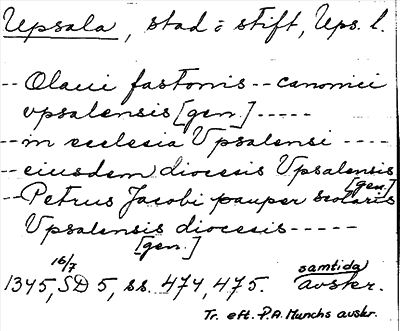 Upsala, stad o stift, Ups. l.
-- Olaui fastonis -- canonici
vpsalensis [gen.] -----
-- in ecclesia Vpsalensi ----
-- eiusdem diocesis Vpsalensis
[gen.]
-- Petrus Jacobi pauper scolaris
Vpsalensis diocesis -----
[gen.]
16/7
1345, SD 5, ss. 474, 475. samtida avskr.
Tr. eft. P.A. Munchs avskr.